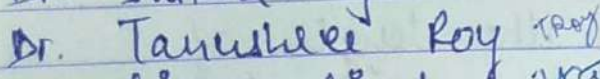 Dr. Tanushree Roy TRoy